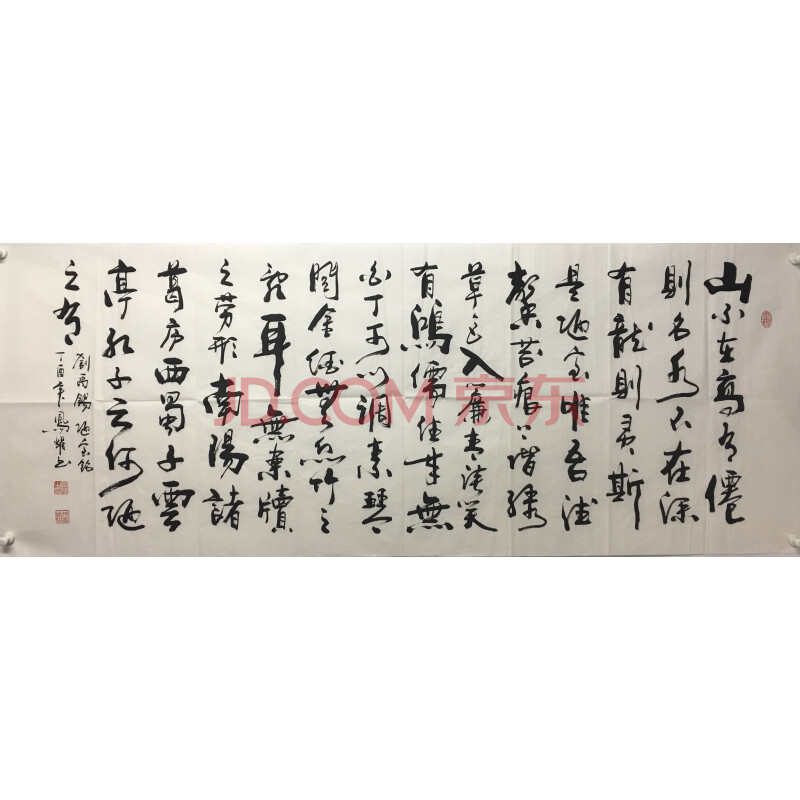 山不在高有僊
則名水不在深
有龍則灵斯
是陋室唯吾德
馨苔痕上階綠
草色入簾青談笑
有鴻儒往來無
白丁可以調素琴
閱金經無絲竹之
亂耳無案牘
之勞形南陽諸
葛庐西蜀子雲
亭孔子云何陋
之有
劉禹錫陋室銘
丁酉 鳳耀书
JD.COM 京东